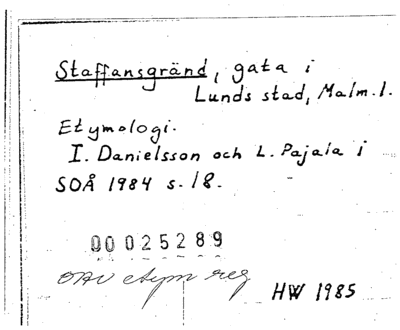 Staffansgränd, gata i
Lunds stad, Malm.l.
Etymologi.
I. Danielsson och L. Pajala i
SOÅ 1984 s. 18.
00025289
OAU etym reg
HW 1985